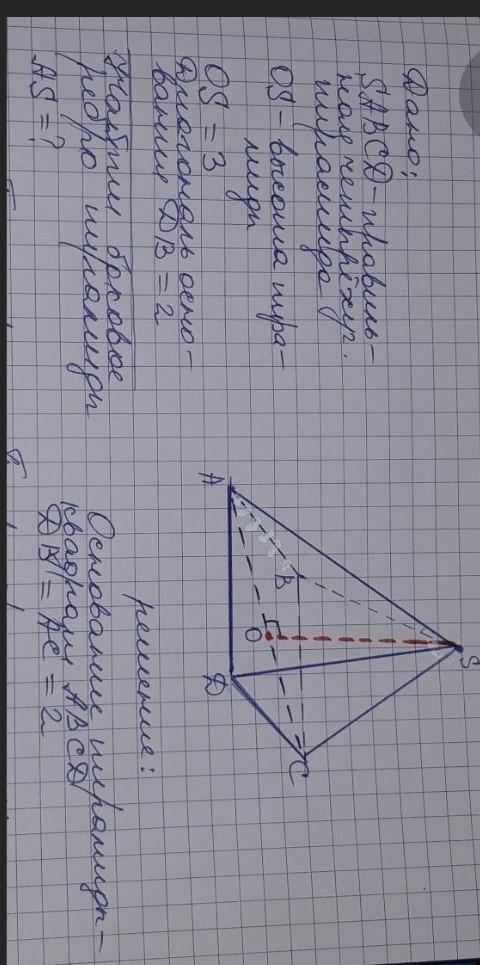 Дано:
SABCD - правиль-
ная четырёхуг.
пирамида
OS - высота пира-
миды
OS = 3
Диагональ осно-
вания DB = 2
Найти боковое
ребро пирамиды
AS = ?
S
A
B
O
D
C
решение:
Основание пирамиды -
квадрат ABCD
DB = AC = 2